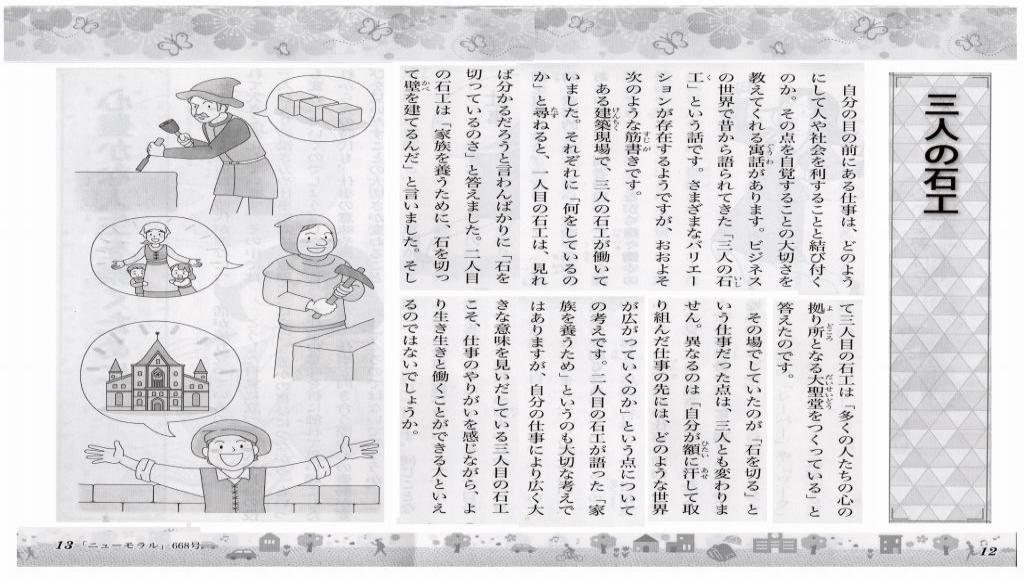 三人の石工
自分の目の前にある仕事は、どのよう
にして人や社会を利することと結び付く
のか。その点を自覚することの大切さを
教えてくれる寓話があります。ビジネス
の世界で昔から語られてきた「三人の石
工」という話です。さまざまなバリエー
ションが存在するようですが、おおよそ
次のような筋書きです。
ある建築現場で、三人の石工が働いて
いました。それぞれに「何をしているの
か」と尋ねると、一人目の石工は、見れ
ば分かるだろうと言わんばかりに「石を
切っているのさ」と答えました。二人目
の石工は「家族を養うために、石を切っ
て壁を建てるんだ」と言いました。そし
て三人目の石工は「多くの人たちの心の
拠り所となる大聖堂をつくっている」と
答えたのです。
その場でしていたのが「石を切る」と
いう仕事だった点は、三人とも変わりま
せん。異なるのは「自分が額に汗して取
り組んだ仕事の先には、どのような世界
が広がっていくのか」という点について
の考えです。二人目の石工が語った「家
族を養うため」というのも大切な考えで
はありますが、自分の仕事により広く大
きな意味を見いだしている三人目の石工
こそ、仕事のやりがいを感じながら、よ
り生き生きと働くことができる人といえ
るのではないでしょうか。
13「ニューモラル」668号
12